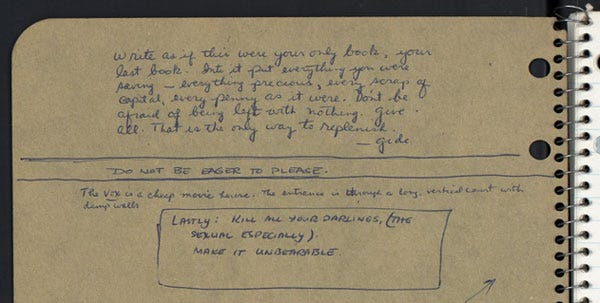 Write as if this were your only book, your
last book. Into it put everything you were
saving — everything precious, every scrap of
capital, every penny as it were. Don't be
afraid of being left with nothing. Give
all. That is the only way to replenish.
— Gide.
DO NOT BE EAGER TO PLEASE.
The Vox is a cheap movie house. The entrance is through a long, vertical court with
damp walls
LASTLY: KILL ALL YOUR DARLINGS, (THE
SEXUAL ESPECIALLY).
MAKE IT UNBEARABLE.